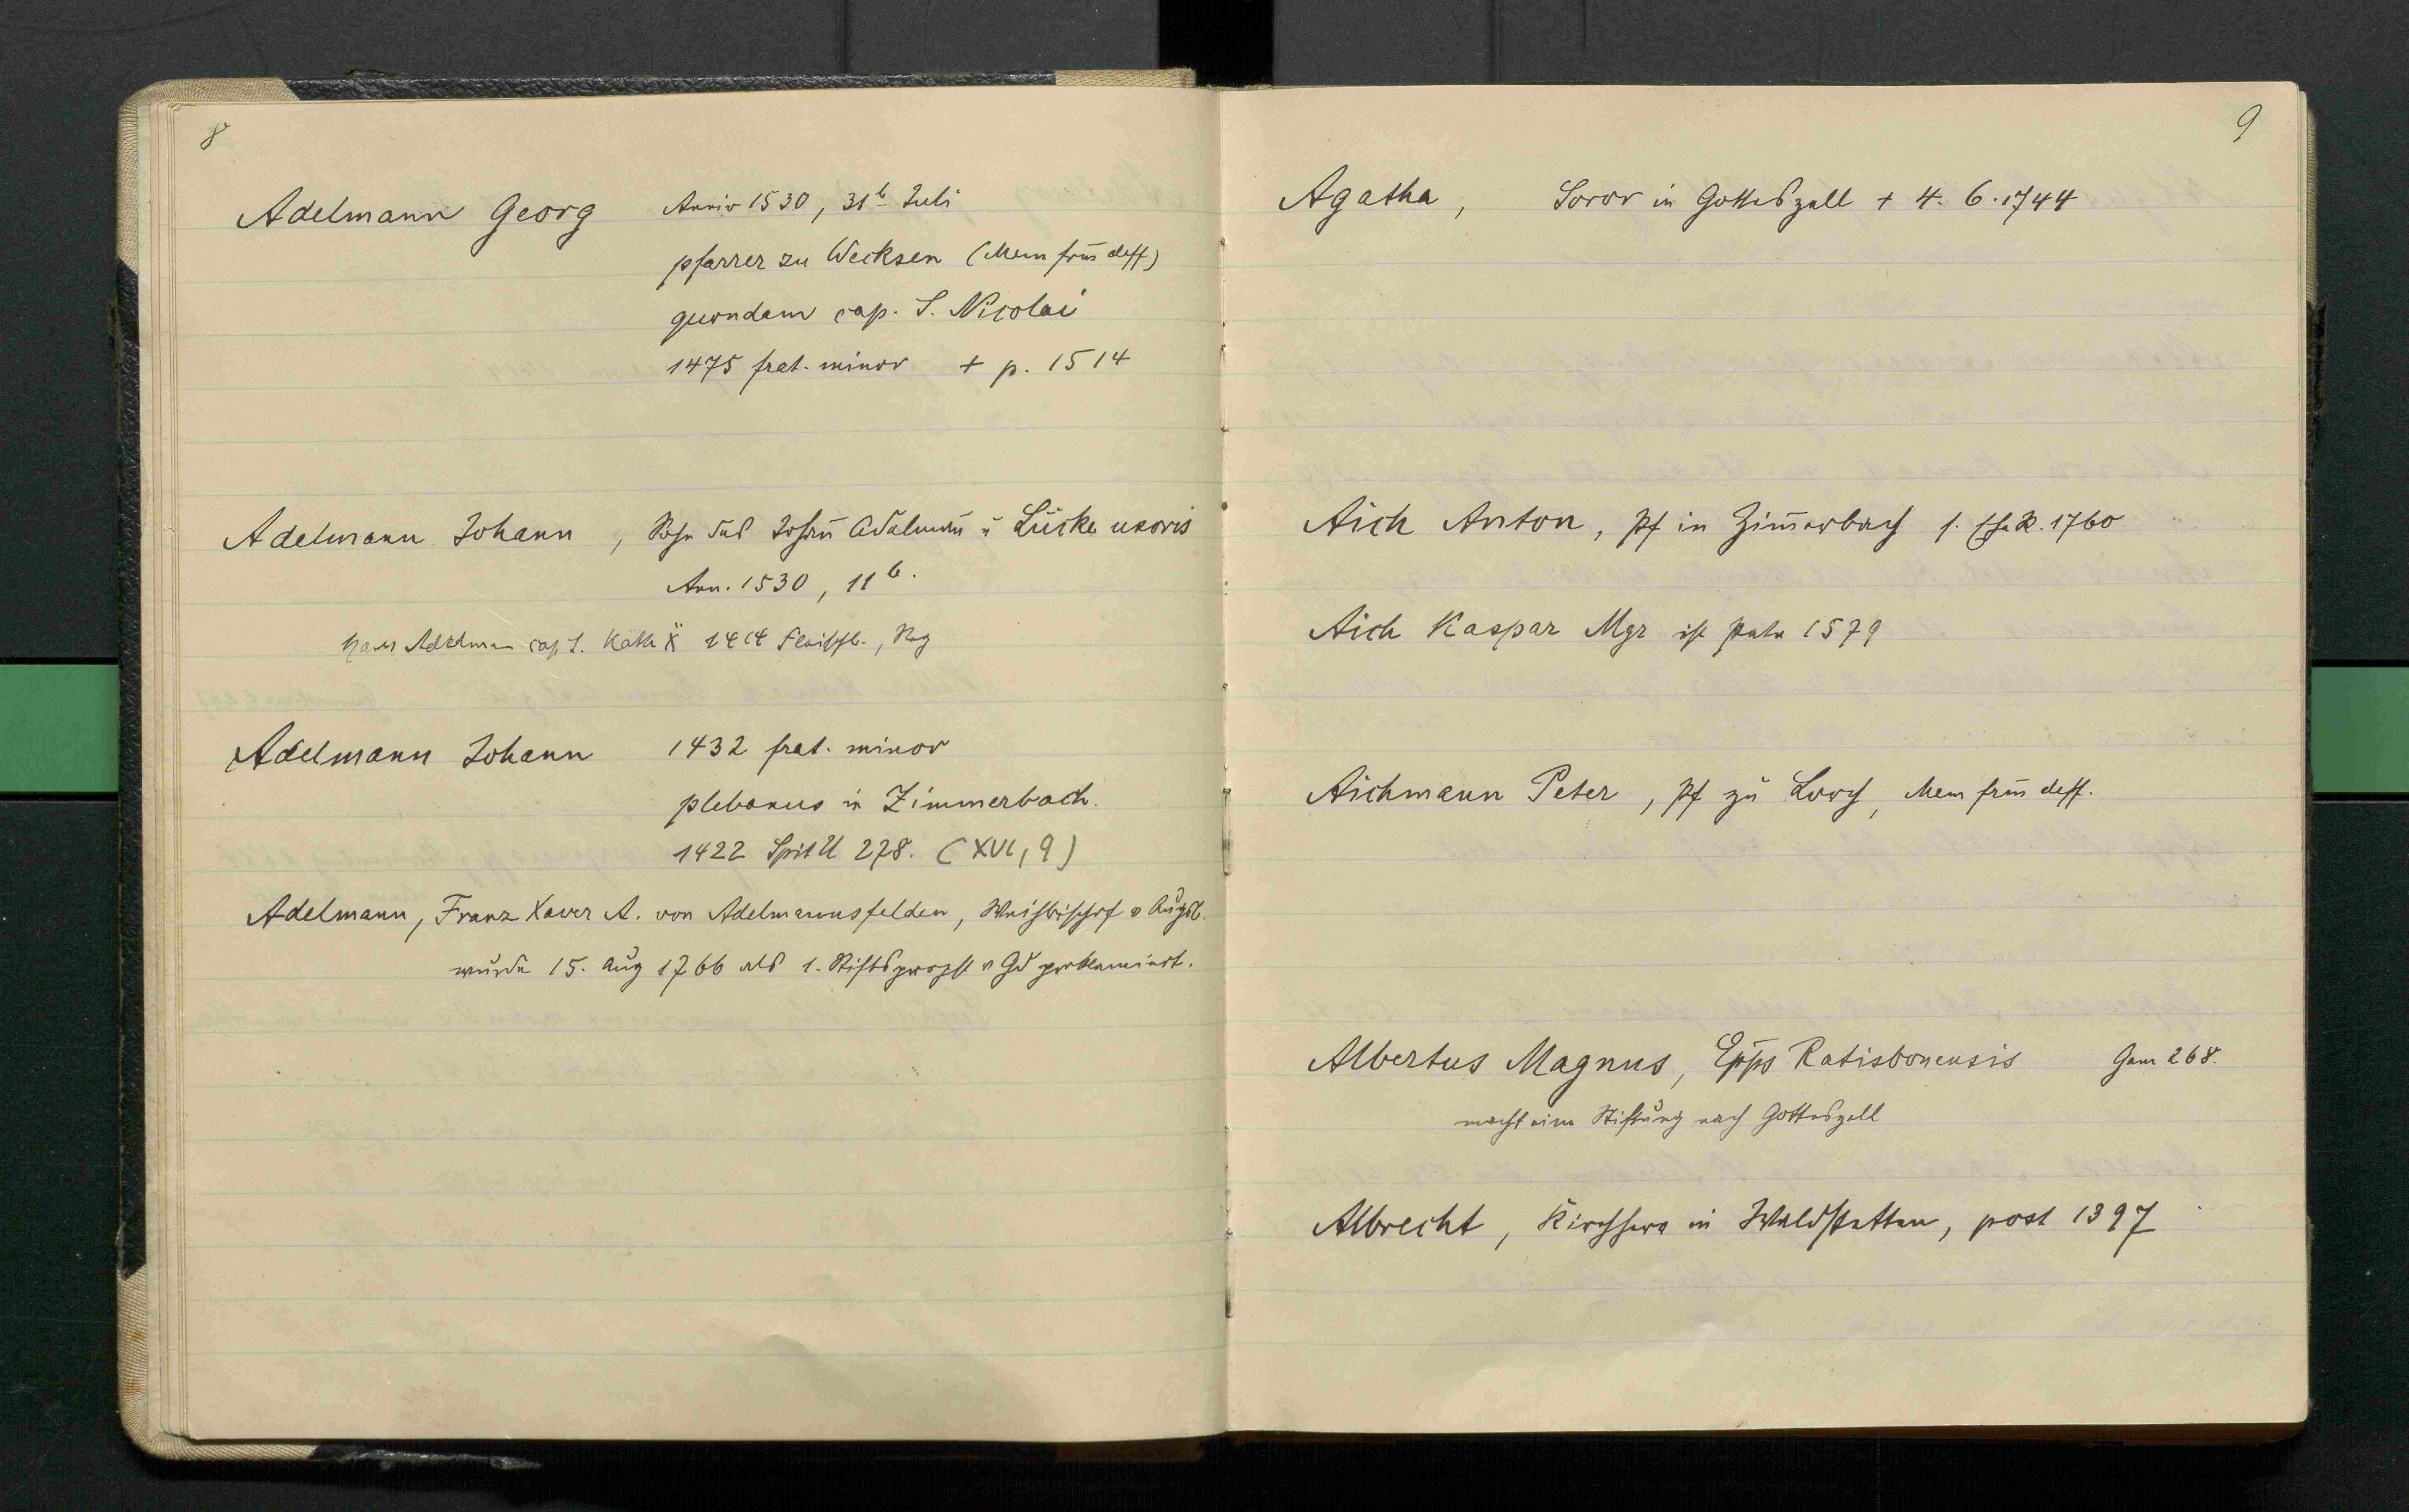 8
Adelmann Georg Anniv 1530, 31b Juli
pfarrer zu Wecksen (Mem frm̄ deff)
quondam cap. S. Nicolai
1475 frat. minor + p. 1514
Adelmann Johann, Sohn des Joham̄ Adelman̄ u Lücke uxoris
Ann. 1530, 11b.
Hans Adelman cap S. Kath 1414
Adelmann Johann 1432 frat. minor
plebanus in Zimmerbach.
1422 Spit U 278. (XVI, 9)
Adelmann, Franz Xaver A. von Adelmannsfelden, Weihbischof v Augsb.
wurde 15. Aug 1766 als 1. Stiftspropst v Gd proklamiert.
9
Agatha, Soror in Gotteszell + 4. 6. 1744
Aich Anton, Pf in Zim̄erbach 1760
Aich Kaspar Mgr ist 1579
Aichmann Peter, Pf zu Lorch, Mem frm̄ deff.
Albertus Magnus, Ep̄ps Ratisbonensis Gam 268.
macht eine Stiftung nach Gotteszell
Albrecht, Kirchherr in Waldstetten, post 1397